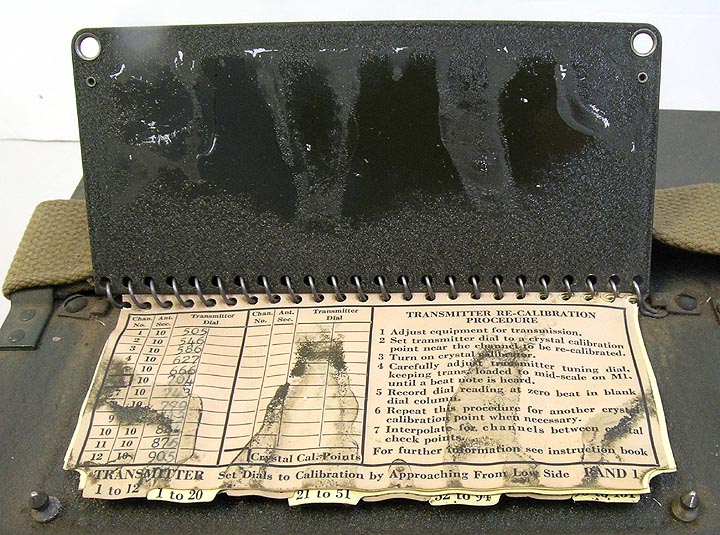 Chan. No. Ant. Sec. Transmitter Dial
1 10 505
2 10 546
3 10 586
4 10 627
10 666
10 704
10
10
9
10 10
11 10 876
12 10 905
Chan. No. Ant. Sec. Transmitter Dial
Crystal Cal. Points
TRANSMITTER RE-CALIBRATION
PROCEDURE
1 Adjust equipment for transmission.
2 Set transmitter dial to a crystal calibration
point near the channel to be re-calibrated.
3 Turn on crystal calibrator.
4 Carefully adjust transmitter tuning dial,
keeping trans. loaded to mid-scale on M1.
until a beat note is heard.
5 Record dial reading at zero beat in blank
dial column.
6 Repeat this procedure for another crystal
calibration point when necessary.
7 Interpolate for channels between crystal
check points.
For further information see instruction book
TRANSMITTER Set Dials to Calibration by Approaching From Low Side BAND 1
1 to 12 1 to 20 21 to 51 52 to 94